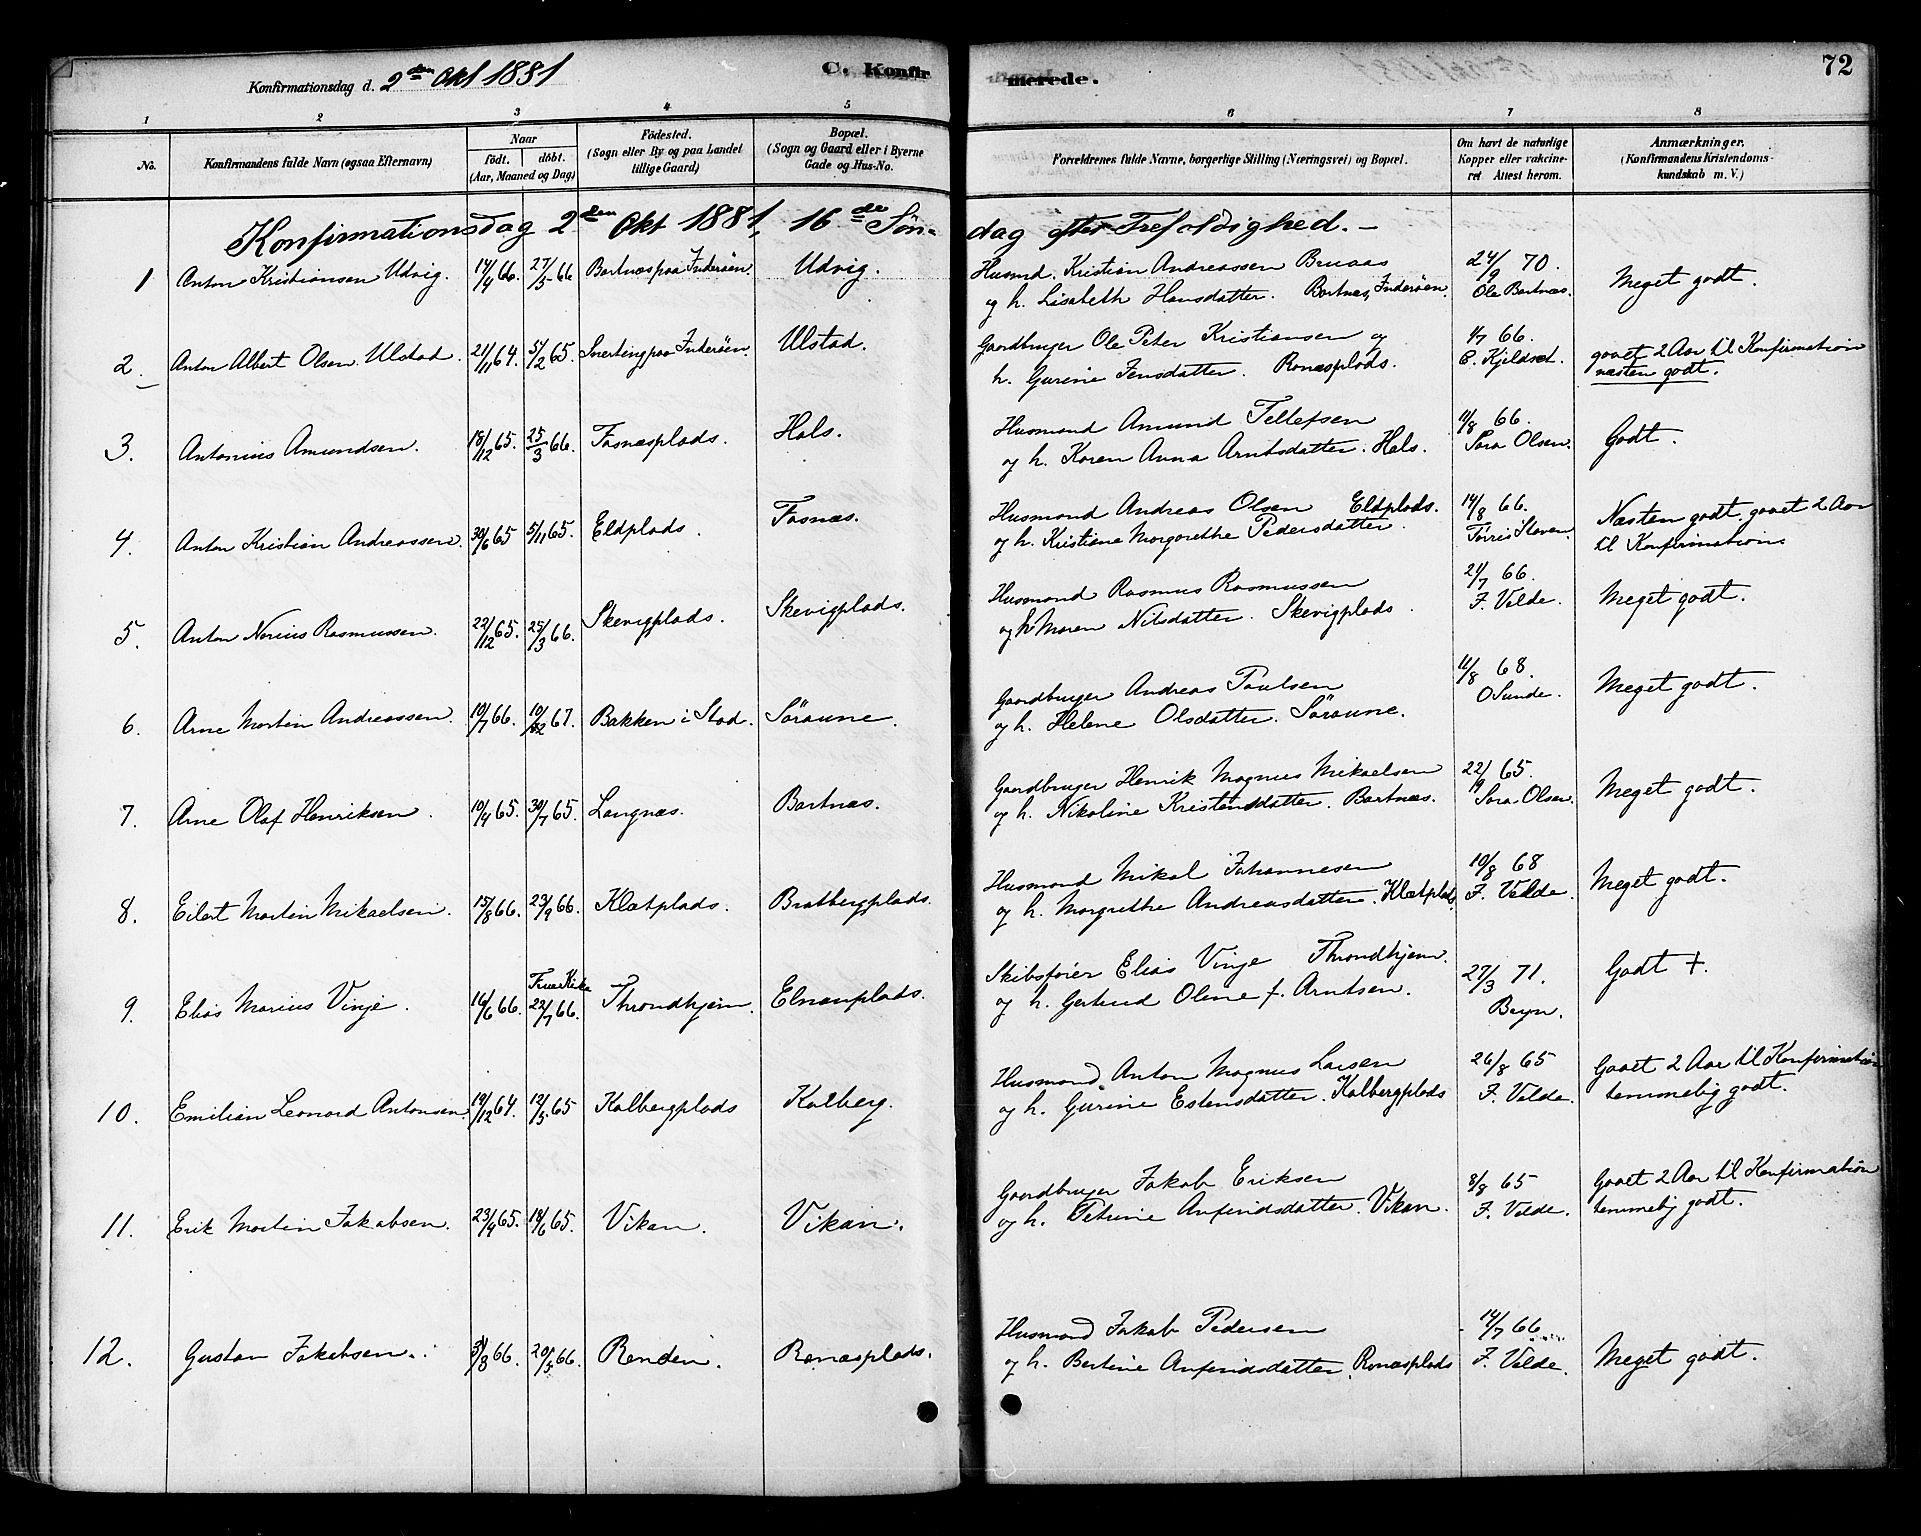 Konfirmationsdag d. 2den Okt 1881
C. Konfirmerede.
72
1 2 3 4 5 6 7 8
No.
Konfirmandens fulde Navn (ogsaa Efternavn)
Naar
födt. döbt.
(Aar, Maaned og Dag)
Födested.
(Sogn eller By og paa Landet
tillige Gaard)
Bopæl.
(Sogn og Gaard eller i Byerne
Gade og Hus-No.
Forældrenes fulde Navne, borgerlige Stilling (Næringsvei) og Bopæl.
Om havt de naturlige
Kopper eller vakcine-
ret Attest herom.
Anmærkninger.
(Konfirmandens Kristendoms-
kundskab m. V.)
Konfirmationsdag 2den Okt 1881, 16de Søn-
dag efter Trefoldighed. —
1 Anton Kristiansen Udvig. 14/4 66. 27/5 66 Bartnes paa Inderøen. Udvig.
Husmd. Kristian Andreassen Bruaas
og h. Lisabeth Hansdatter. Bartnes, Inderøen.
24/9 70.
Ole Bartnæs.
Meget godt.
2. Anton Albert Olsen Ulstad. 21/11 64. 5/2 65. paa Inderøen. Ulstad.
Gaardbruger Ole Peter Kristiansen og
h. Gurine Jensdatter. Ronæsplads.
66.
E. Kjeldset.
gaaet 2 Aar til Konfirmation
næsten godt.
3. Antonius Amundsen. 18/12 65. 25/3 66. Fosnæsplads. Hals.
Husmand Amund Tellefsen
og h. Karen Anna Arntsdatter. Hals.
11/8 66.
Sara Olsen.
Godt.
4. Anton Kristian Andreassen. 30/6 65 5/11 65. Eldplads. Fosnæs.
Husmand Andreas Olsen Eldplads.
og h. Kristiane Margarethe Pedersdatter.
14/8 66.
Tørris Staven.
Næsten godt. gaaet 2 Aar
til Konfirmation
5. Anton Norius Rasmussen. 22/12 65. 25/3 66. Skevigplads. Skevigplads.
Husmand Rasmus Rasmussen
og h Maren Nilsdatter. Skevigplads.
21/7 66.
F. Velde.
Meget godt.
6. Arne Martin Andreassen. 10/7 66. 67. Bakken i Stod. Söraune.
Gaardbruger Andreas Paulsen
og h. Helene Olsdatter. Söraune.
11/8 68.
O Sunde.
Meget godt.
7. Arne Olaf Henriksen. 10/4 65. 30/7 65. Langnæs. Bartnæs.
Gaardbruger Henrik Magnus Mikaelsen
og h. Nikoline Kristensdatter. Bartnæs.
22/9 65.
Sara Olsen.
Meget godt.
8. Eilert Martin Mikaelsen. 15/8 66. 23/9 66. Kletplads. Bratbergplads.
Husmand Mikal Johannesen
og h. Margrethe Andreasdatter. Kletplads.
10/8 68
F. Velde.
Meget godt.
9. Elias Marius Vinje. 16/6 66. Frue Kirke 22/7 66. Throndhjem. Elnanplads.
Skibsfører Elias Vinje Throndhjem.
og h. Gertrud Oline f. Arntsen.
27/3 71.
Godt +.
10. Emilian Leonard Antonsen. 19/12 64. 12/5 65 Kalbergplads Kalberg.
Husmand Anton Magnus Larsen
og h. Gurine Estensdatter. Kalbergplads
26/8 65
F. Velde.
Gaaet 2 Aar til Konfirmation
temmelig godt.
11. Erik Martin Jakobsen. 23/4 65. 18/6 65. Vikan. Vikan.
Gaardbruger Jakob Eriksen
og h. Petrine Anfindsdatter. Vikan.
8/8 65
F. Velde.
Gaaet 2 Aar til Konfirmation
temmelig godt.
12. Gustav Jakobsen. 66. 20/5 66. Renden. Ronæsplads.
Husmand Jakob Pedersen
og h. Bertine Anfindsdatter. Ronæsplads
14/7 66
F. Velde.
Meget godt.